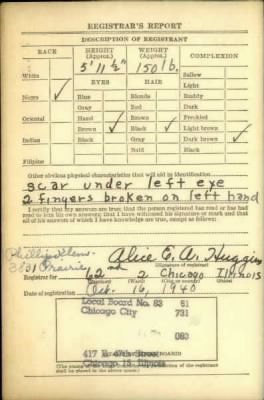 REGISTRAR'S REPORT
DESCRIPTION OF REGISTRANT
RACE HEIGHT (Approx.) WEIGHT (Approx.) COMPLEXION
5' 11 ½" 150 lb.
White EYES HAIR Sallow
Light
Negro ✓ Blue Blonde Ruddy
Gray Red Dark
Oriental Hazel Brown Freckled
Brown ✓ Black ✓ Light brown ✓
Indian Black Gray Dark brown
Bald Black
Filipino
Other obvious physical characteristics that will aid in identification
scar under left eye
2 fingers broken on left hand
I certify that my answers are true; that the person registered has read or has had
read to him his own answers; that I have witnessed his signature or mark and that
all of his answers of which I have knowledge are true, except as follows:
Alice E. A. Huggins
3831 Prairie (Signature of registrant)
Registrar for 62nd 2 Chicago Illinois
(Ward) (City or county) (State)
Date of registration Oct. 16, 1940
Local Board No. 83 61
Chicago City 731
083
417 E. 47th Street
Chicago 15, Illinois
shall be placed in the above space.)